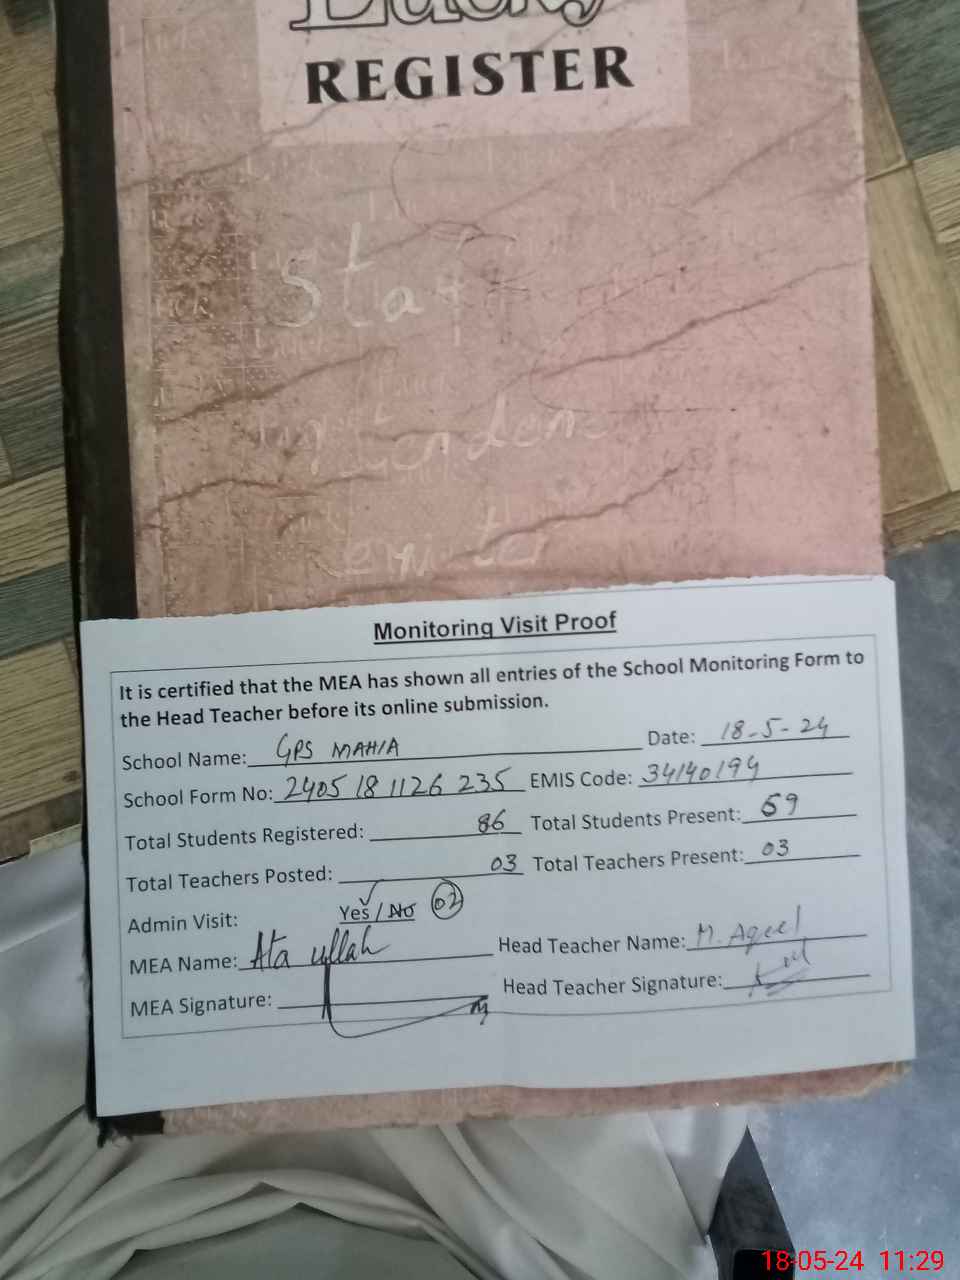 Lucky
REGISTER
Staff
Monitoring Visit Proof
It is certified that the MEA has shown all entries of the School Monitoring Form to
the Head Teacher before its online submission.
School Name: GPS MAHIA Date: 18-5-24
School Form No: 2405 18 1126 235 EMIS Code: 34140194
Total Students Registered: 86 Total Students Present: 59
Total Teachers Posted: 03 Total Teachers Present: 03
Admin Visit: Yes / No 02
MEA Name: Ata ullah Head Teacher Name: M. Aqeel
MEA Signature: Head Teacher Signature:
18-05-24 11:29